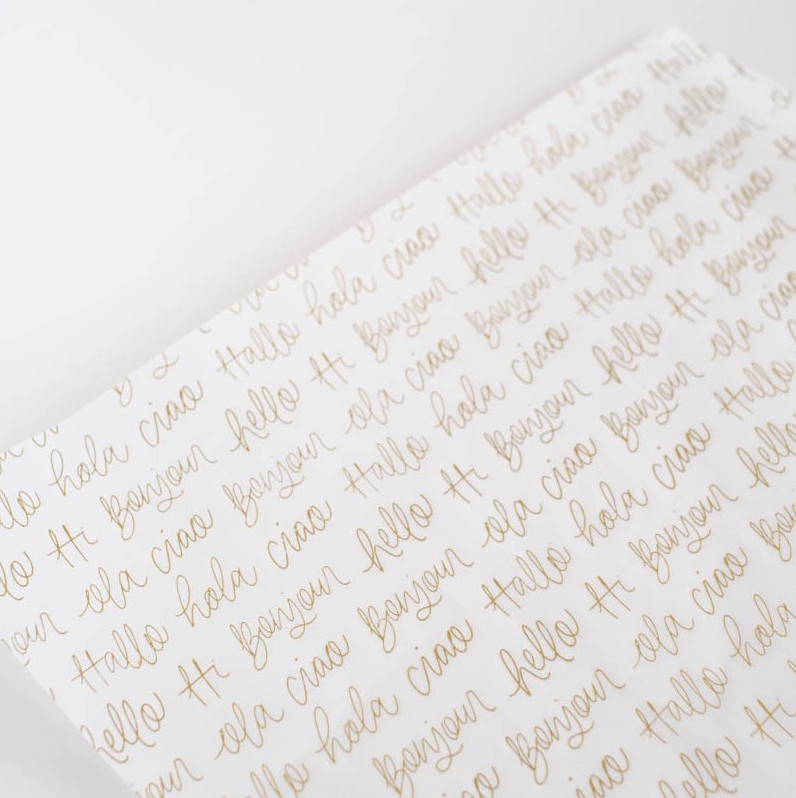 llo hola ciao Hallo hola ciao Hallo hola ciao Hallo
lo Hi Bonjour hello Hi Bonjour hello Hi Bonjour hello
our ola ciao Bonjour ola ciao Bonjour ola ciao Bonjour
Hallo hola ciao Hallo hola ciao Hallo hola ciao H
hello Hi Bonjour hello Hi Bonjour hello Hi Bonjour
our ola ciao Bonjour ola ciao Bonjour ola ciao
allo hola ciao Hallo hola ciao Hallo
Bonjour hello Hi Bonjour hello
ao Bonjour ola ciao Bon
ciao Hallo hola
hello Hi